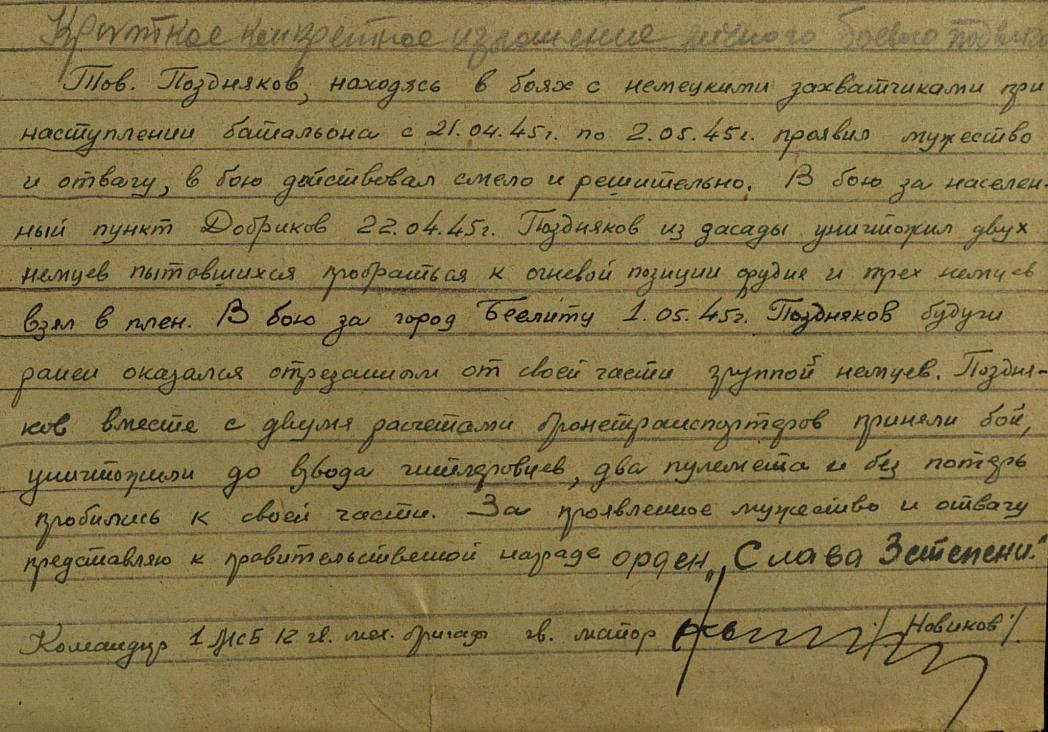 Краткое конкретное изложение личного боевого подвига
Тов. Поздняков, находясь в боях с немецкими захватчиками при
наступлении батальона с 21.04.45г. по 2.05.45г. проявил мужество
и отвагу, в бою действовал смело и решительно. В бою за населен-
ный пункт Добриков 22.04.45г. Поздняков из засады уничтожил двух
немцев пытавшихся пробраться к огневой позиции орудия и трех немцев
взял в плен. В бою за город Беелиту 1.05.45г. Поздняков будучи
ранен оказался отрезанным от своей части группой немцев. Поздня-
ков вместе с двумя расчетами бронетранспортеров приняли бой,
уничтожили до взвода гитлеровцев, два пулемета и без потерь
пробились к своей части. За проявленное мужество и отвагу
представляю к правительственной награде орден „Слава 3 степени."
Командир 1 МСБ 12 гв. мех. бригады гв. майор /Новиков/.